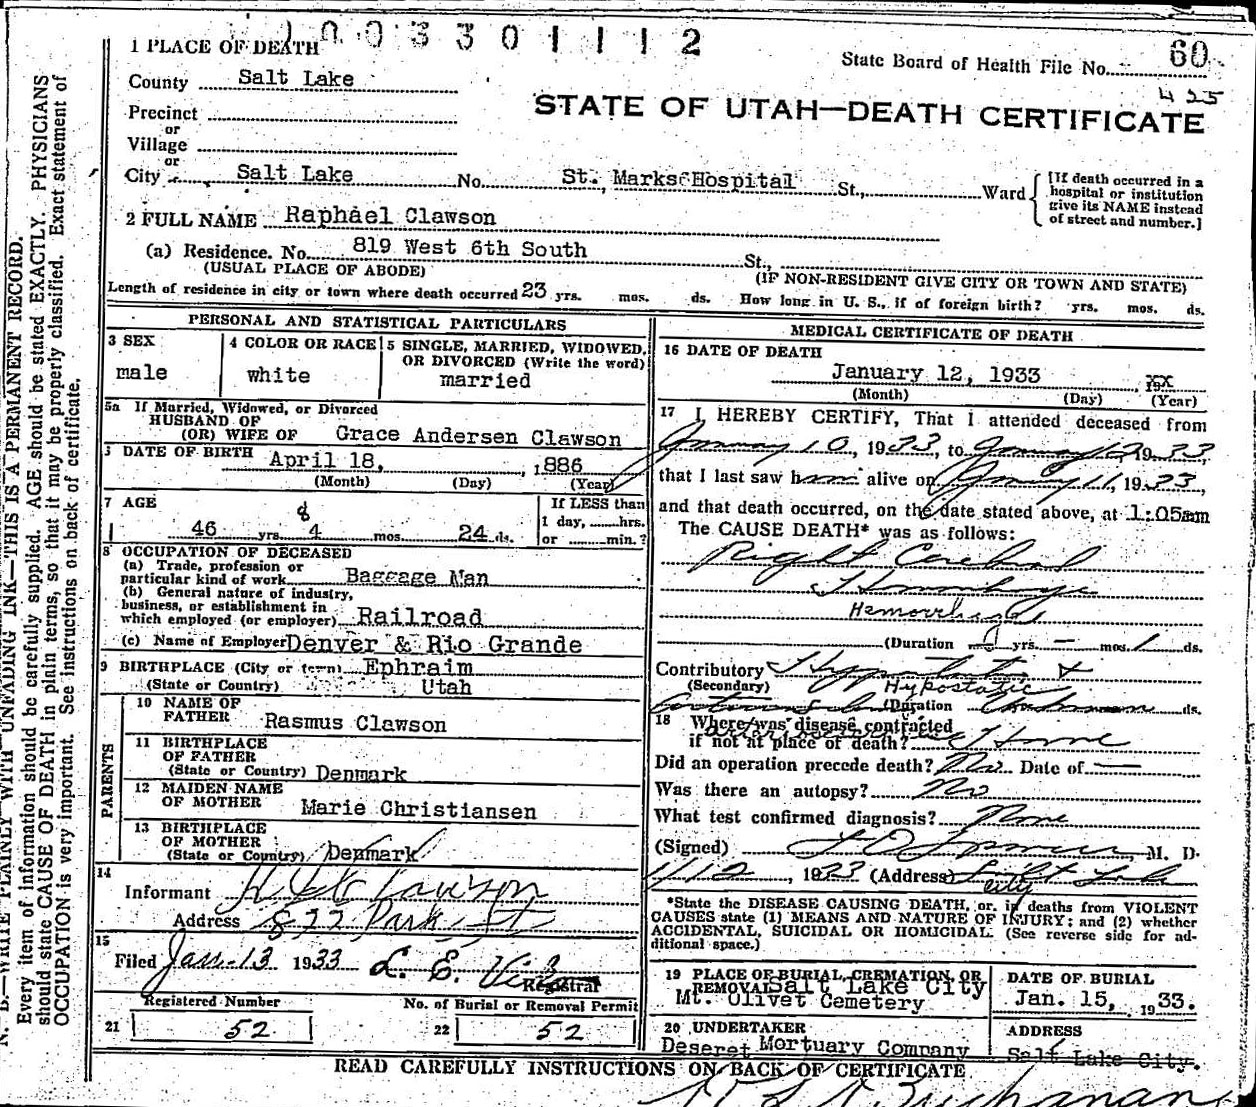 1003301112
State Board of Health File No. 60
425
1 PLACE OF DEATH
County Salt Lake
STATE OF UTAH—DEATH CERTIFICATE
Precinct
or
Village
or
City Salt Lake No. St. Marks Hospital St., Ward
[If death occurred in a
hospital or institution
give its NAME instead
of street and number.]
2 FULL NAME Raphael Clawson
(a) Residence. No. 819 West 6th South St.,
(USUAL PLACE OF ABODE) (IF NON-RESIDENT GIVE CITY OR TOWN AND STATE)
Length of residence in city or town where death occurred 23 yrs. mos. ds. How long in U. S., if of foreign birth? yrs. mos. ds.
PERSONAL AND STATISTICAL PARTICULARS
3 SEX
male
4 COLOR OR RACE
white
5 SINGLE, MARRIED, WIDOWED,
OR DIVORCED (Write the word)
married
5a If Married, Widowed, or Divorced
HUSBAND OF
(OR) WIFE OF Grace Andersen Clawson
DATE OF BIRTH April 18, 1886
(Month) (Day) (Year)
7 AGE
8
46 yrs. 4 mos. 24 ds.
If LESS than
1 day, hrs.
or min.?
8 OCCUPATION OF DECEASED
(a) Trade, profession or
particular kind of work Baggage Man
(b) General nature of industry,
business, or establishment in
which employed (or employer) Railroad
(c) Name of Employer Denver & Rio Grande
9 BIRTHPLACE (City or town) Ephraim
(State or Country) Utah
PARENTS
10 NAME OF
FATHER Rasmus Clawson
11 BIRTHPLACE
OF FATHER
(State or Country) Denmark
12 MAIDEN NAME
OF MOTHER Marie Christiansen
13 BIRTHPLACE
OF MOTHER
(State or Country) Denmark
14
Informant Clawson
Address 822 Park St
15
Filed Jan. 13 1933 L. E.
Registrar
Registered Number
21 52
No. of Burial or Removal Permit
22 52
MEDICAL CERTIFICATE OF DEATH
16 DATE OF DEATH
January 12, 1933
(Month) (Day) (Year)
17 I HEREBY CERTIFY, That I attended deceased from
January 10, 1933, to January 12 1933,
that I last saw him alive on January 11, 1933,
and that death occurred, on the date stated above, at 1:05am
The CAUSE DEATH* was as follows:
Right Cerebral
Hemorrhage
Hemorrhage
(Duration yrs. — mos. 1 ds.
Contributory &
(Secondary) Hypostatic
(Duration ds.
18 Where was disease contracted
if not at place of death? Home
Did an operation precede death? No Date of —
Was there an autopsy? No
What test confirmed diagnosis? None
(Signed) M. D.
1/12, 1933 (Address) Salt Lake
City
*State the DISEASE CAUSING DEATH, or, in deaths from VIOLENT
CAUSES state (1) MEANS AND NATURE OF INJURY; and (2) whether
ACCIDENTAL, SUICIDAL OR HOMICIDAL. (See reverse side for ad-
ditional space.)
19 PLACE OF BURIAL, CREMATION, OR
REMOVAL Salt Lake City
Mt. Olivet Cemetery
DATE OF BURIAL
Jan. 15, 1933.
20 UNDERTAKER
Deseret Mortuary Company
ADDRESS
Salt Lake City.
READ CAREFULLY INSTRUCTIONS ON BACK OF CERTIFICATE
Buchanan
N. B.—WRITE PLAINLY WITH UNFADING INK—THIS IS A PERMANENT RECORD.
Every item of information should be carefully supplied. AGE should be stated EXACTLY. PHYSICIANS
should state CAUSE OF DEATH in plain terms, so that it may be properly classified. Exact statement of
OCCUPATION is very important. See instructions on back of certificate.